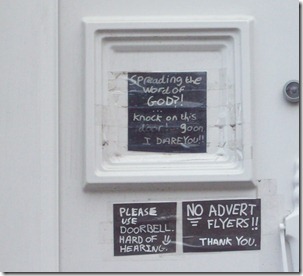 Spreading the
word of
GOD?!
...
knock on this
door! goon
I DAREYOU!!
PLEASE
USE
DOORBELL.
HARD OF
HEARING.
NO ADVERT
FLYERS!!
THANK YOU.